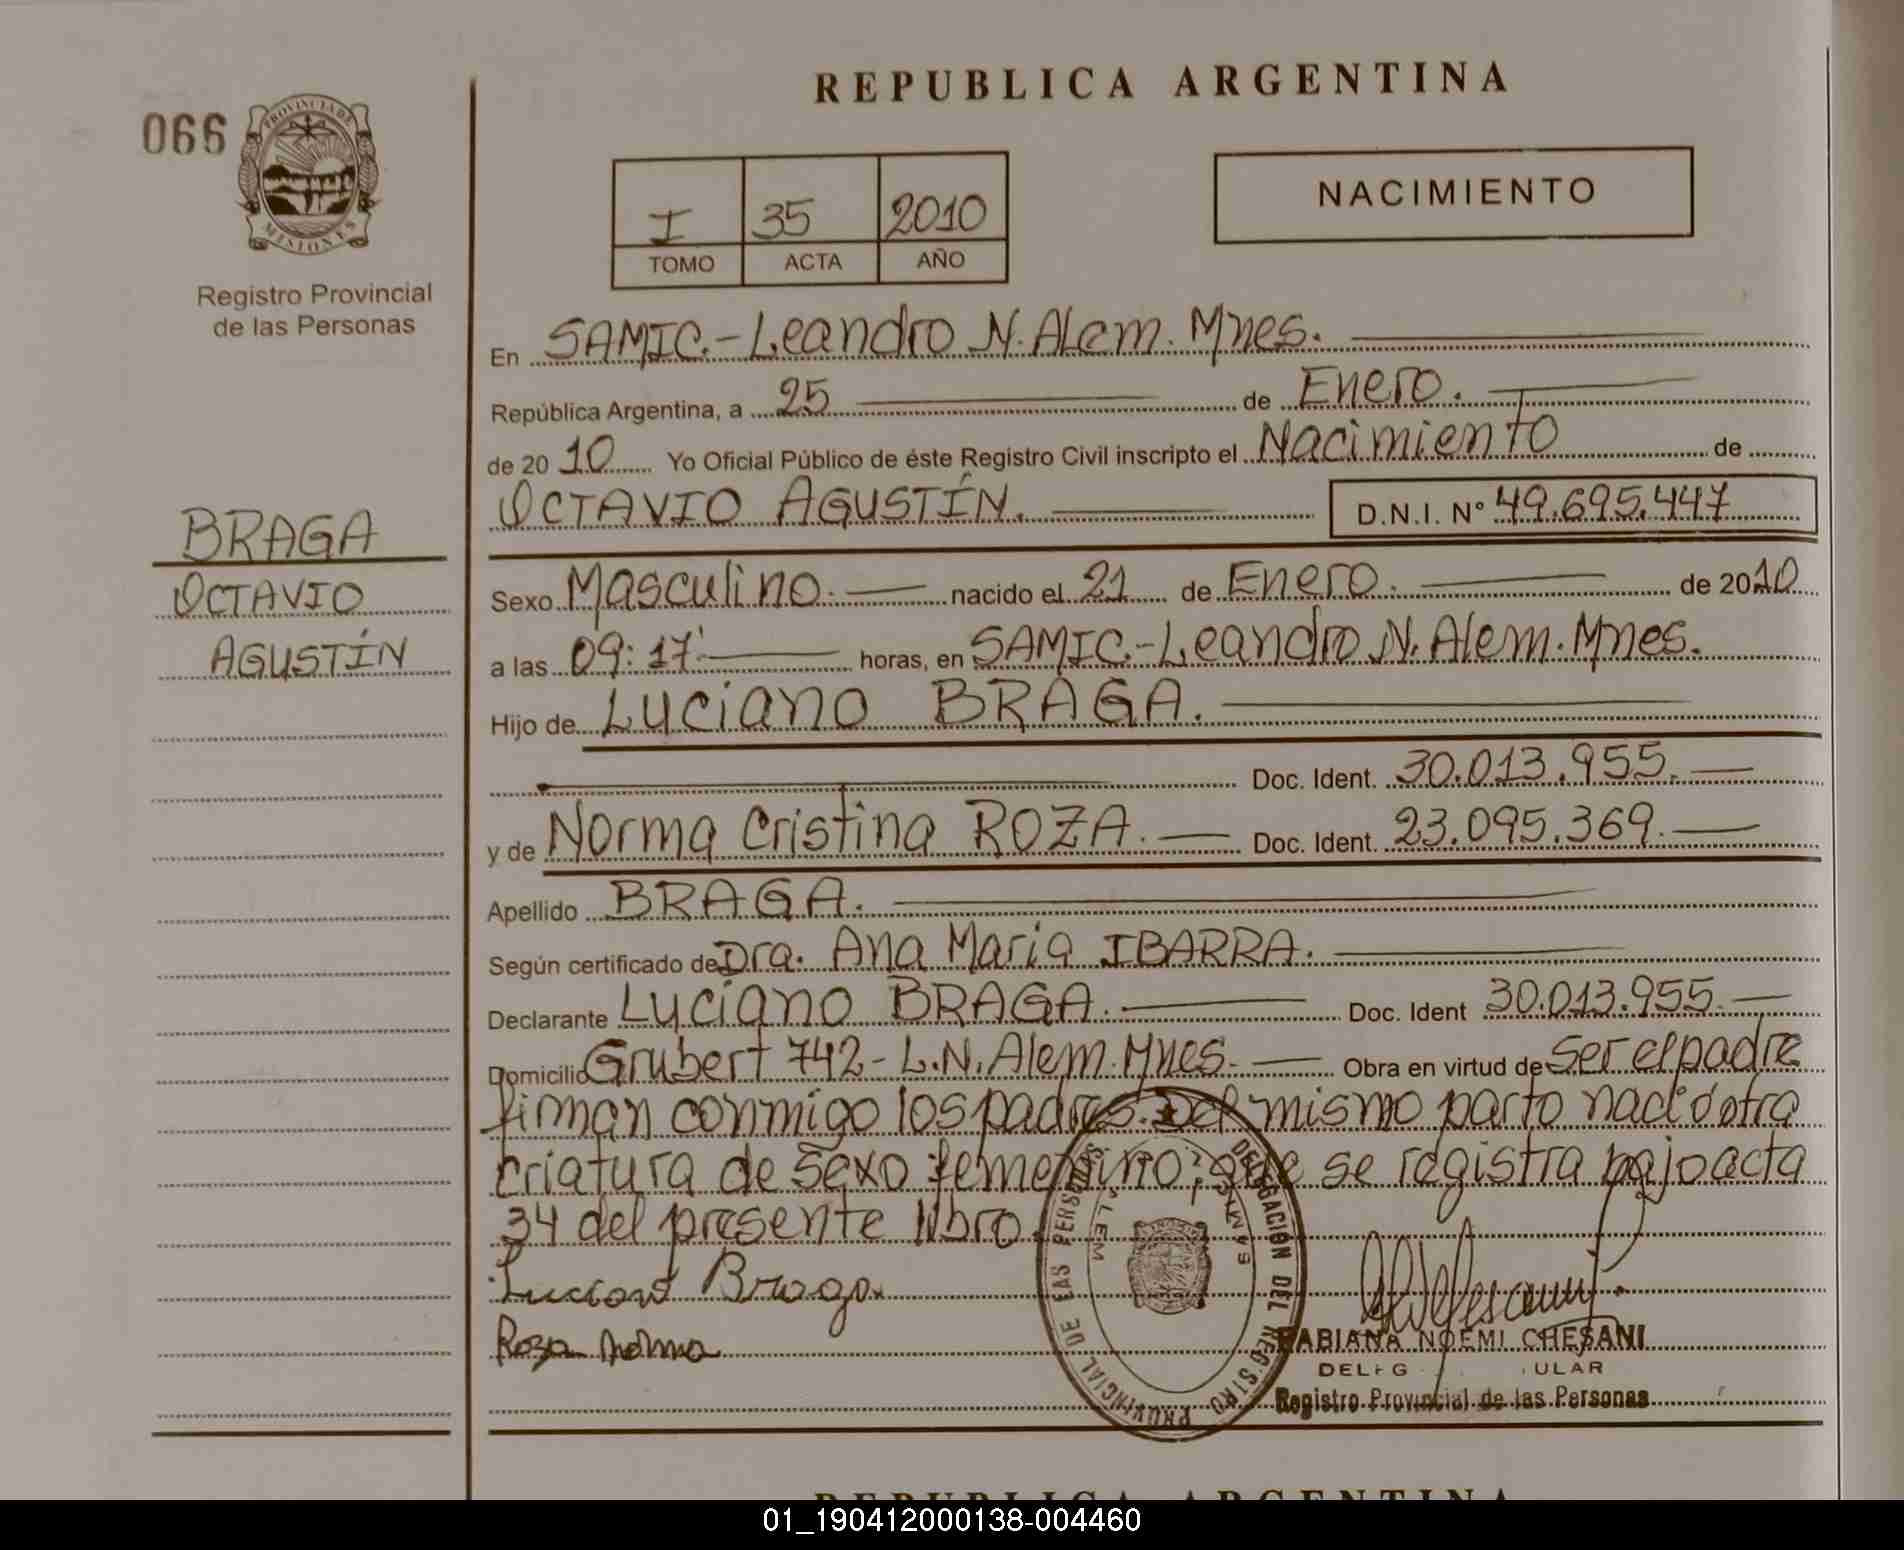 REPUBLICA ARGENTINA
066
PROVINCIA DE
MISIONES
Registro Provincial
de las Personas
I 35 2010
TOMO ACTA AÑO
NACIMIENTO
En SAMIC.-Leandro N. Alem. Mnes.
República Argentina, a 25 de Enero.
de 20 10 Yo Oficial Público de éste Registro Civil inscripto el Nacimiento de
OCTAVIO AGUSTÍN. D.N.I. N° 49.695.447
BRAGA
OCTAVIO
AGUSTÍN
Sexo Masculino. nacido el 21 de Enero. de 2010
a las 09:17' horas, en SAMIC.-Leandro N. Alem. Mnes.
Hijo de Luciano BRAGA.
Doc. Ident. 30.013.955.
y de Norma Cristina ROZA. Doc. Ident. 23.095.369.
Apellido BRAGA.
Según certificado de Dra. Ana María IBARRA.
Declarante Luciano BRAGA. Doc. Ident 30.013.955.
Domicilio Grubert 742-L.N. Alem. Mnes. Obra en virtud de ser el padre
firman conmigo los padres. Del mismo parto nació otra
criatura de sexo femenino; que se registra bajo acta
34 del presente libro.
Luciano Braga
Roza Norma
DELEGACION DEL REGISTRO PROVINCIAL DE LAS PERSONAS
SAMIC
ALEM
FABIANA NOEMI CHESANI
DELEG ULAR
Registro Provincial de las Personas
REPUBLICA ARGENTINA
01_190412000138-004460